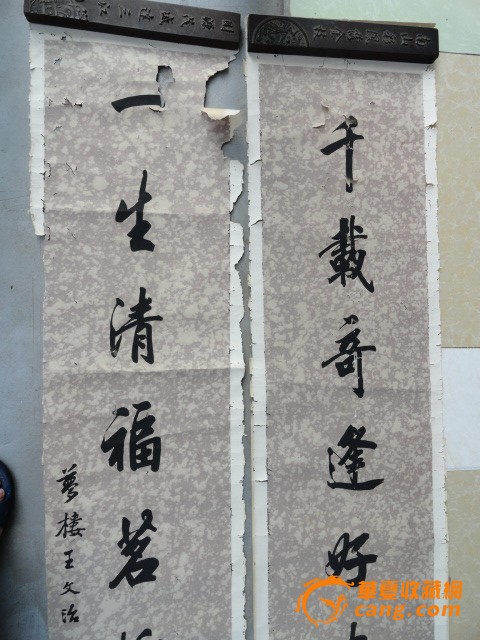 千載奇逢好
一生清福茗
夢樓王文治
華夏收藏網
cang.com